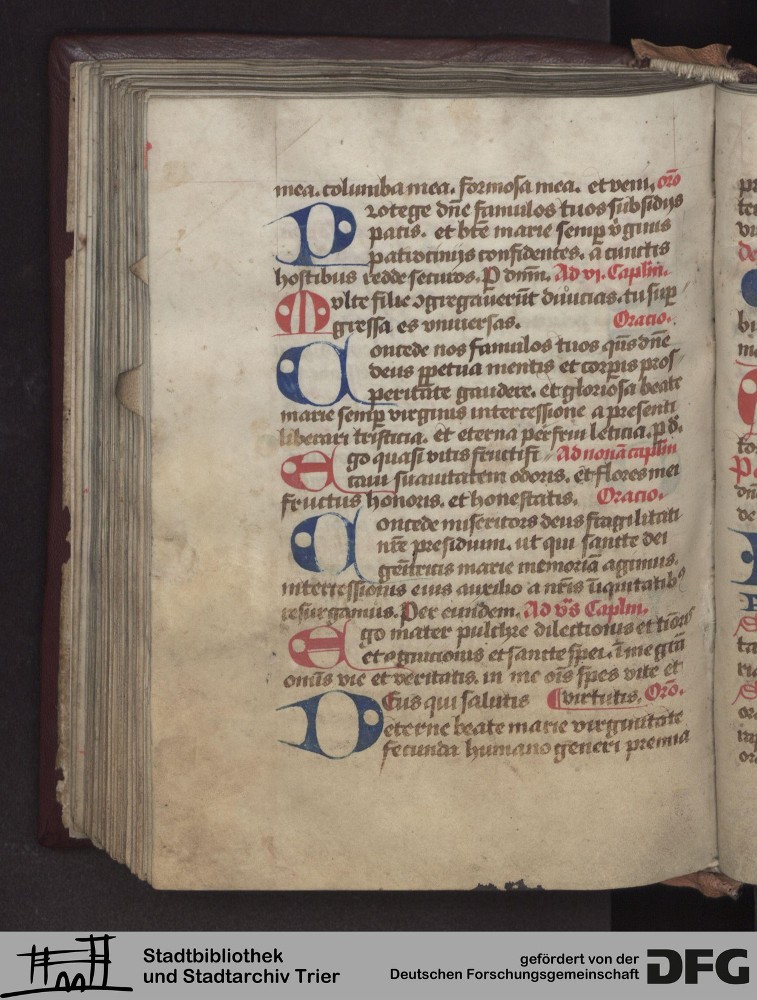 mea. columba mea. formosa mea. et veni. oro
Protege dne famulos tuos subsidijs
pacis. et bte marie semp vginis
patrocinijs confidentes. a cunctis
hostibus redde securos. P dnm. Ad vj. Caplm.
Multe filie ɔgregaverut divicias. tu sup
gressa es vniversas. Oracio.
Concede nos famulos tuos qs dne
deus ppetua mentis et corpis pros
peritate gaudere. et gloriosa beate
marie semp virginis intercessione a presenti
liberari tristicia. et eterna perfrui leticia. p d.
Ego quasi vitis fructifi Ad nonā caplm
cavi suavitatem odoris. et flores mei
fructus honoris. et honestatis. Oracio.
Concede misericors deus fragilitati
nre presidium. ut qui sancte dei
genitricis marie memoriā agimus.
intercessionis eius auxilio a nris iiquitatib9
resurgamus. Per eundem. Ad vs Caplm.
Ego mater pulchre dilectionis et timoris
et ɔgnicionis et sancte spei. ī me gra
omis vie et veritatis. in me ois spes vite et
Deus qui salutis virtutis. Oro.
eterne beate marie virginitate
fecunda humano generi premia
Stadtbibliothek
und Stadtarchiv Trier
gefördert von der
Deutschen Forschungsgemeinschaft
DFG